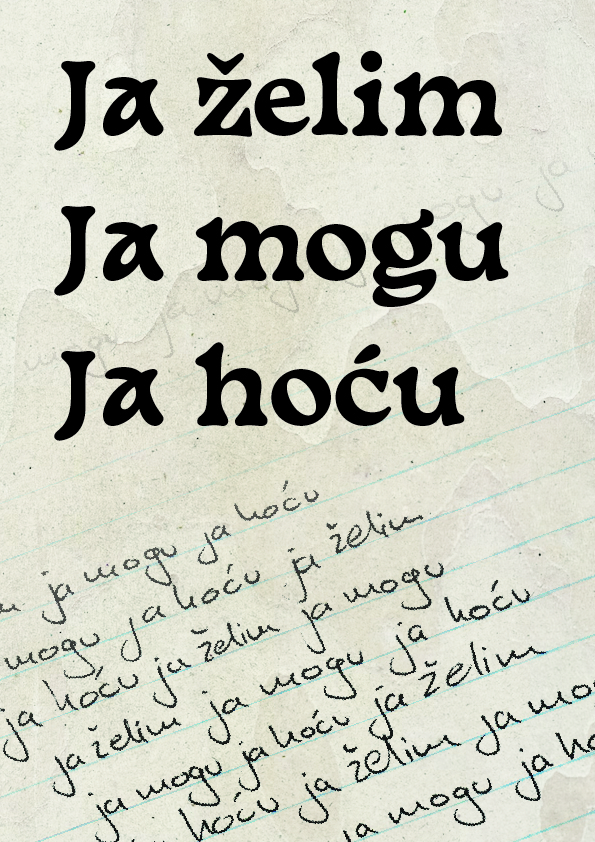 Ja želim
Ja mogu
Ja hoću
ja mogu ja hoću
mogu ja hoću ja želim
ja hoću ja želim ja mogu
ja želim ja mogu ja hoću
ja mogu ja hoću ja želim
hoću ja želim ja
ja mogu ja